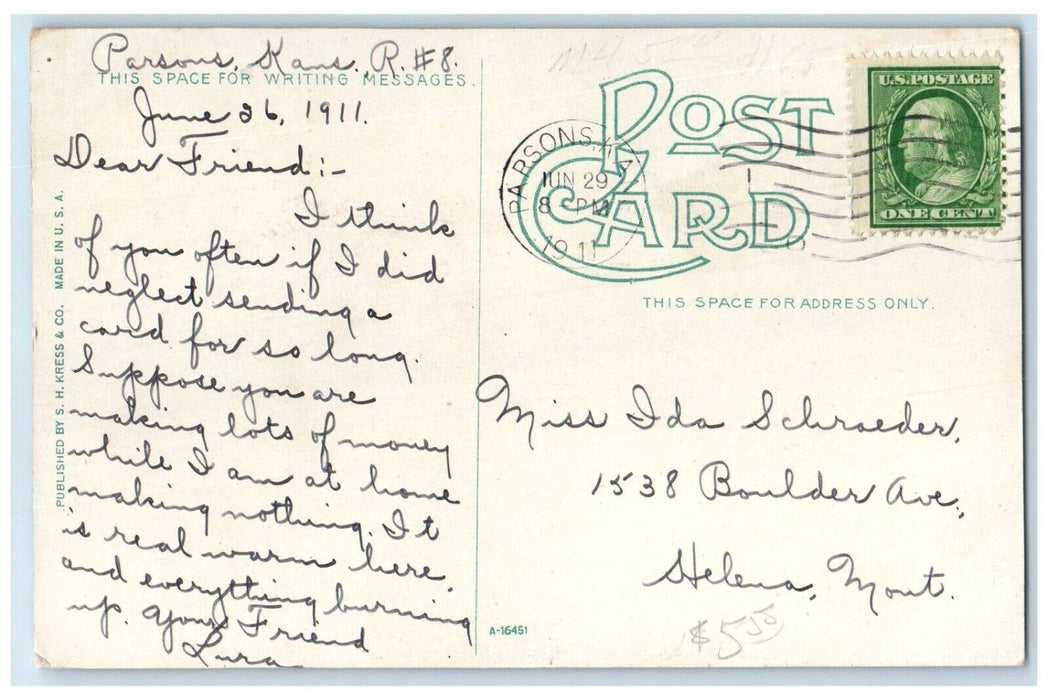 Parsons, Kans. R. #8.
THIS SPACE FOR WRITING MESSAGES.
June 26, 1911.
Dear Friend:-
I think
of you often if I did
neglect sending a
card for so long.
Suppose you are
making lots of money
while I am at home
making nothing. It
is real warm here,
and everything burning
up. Your Friend
Lura
PUBLISHED BY S. H. KRESS & CO. MADE IN U. S. A.
POST
CARD
PARSONS,
JUN 29
8 - PM
1911
U.S. POSTAGE
ONE CENT
THIS SPACE FOR ADDRESS ONLY.
Miss Ida Schroeder,
1538 Boulder Ave.,
Helena, Mont.
A-16451
$5.50